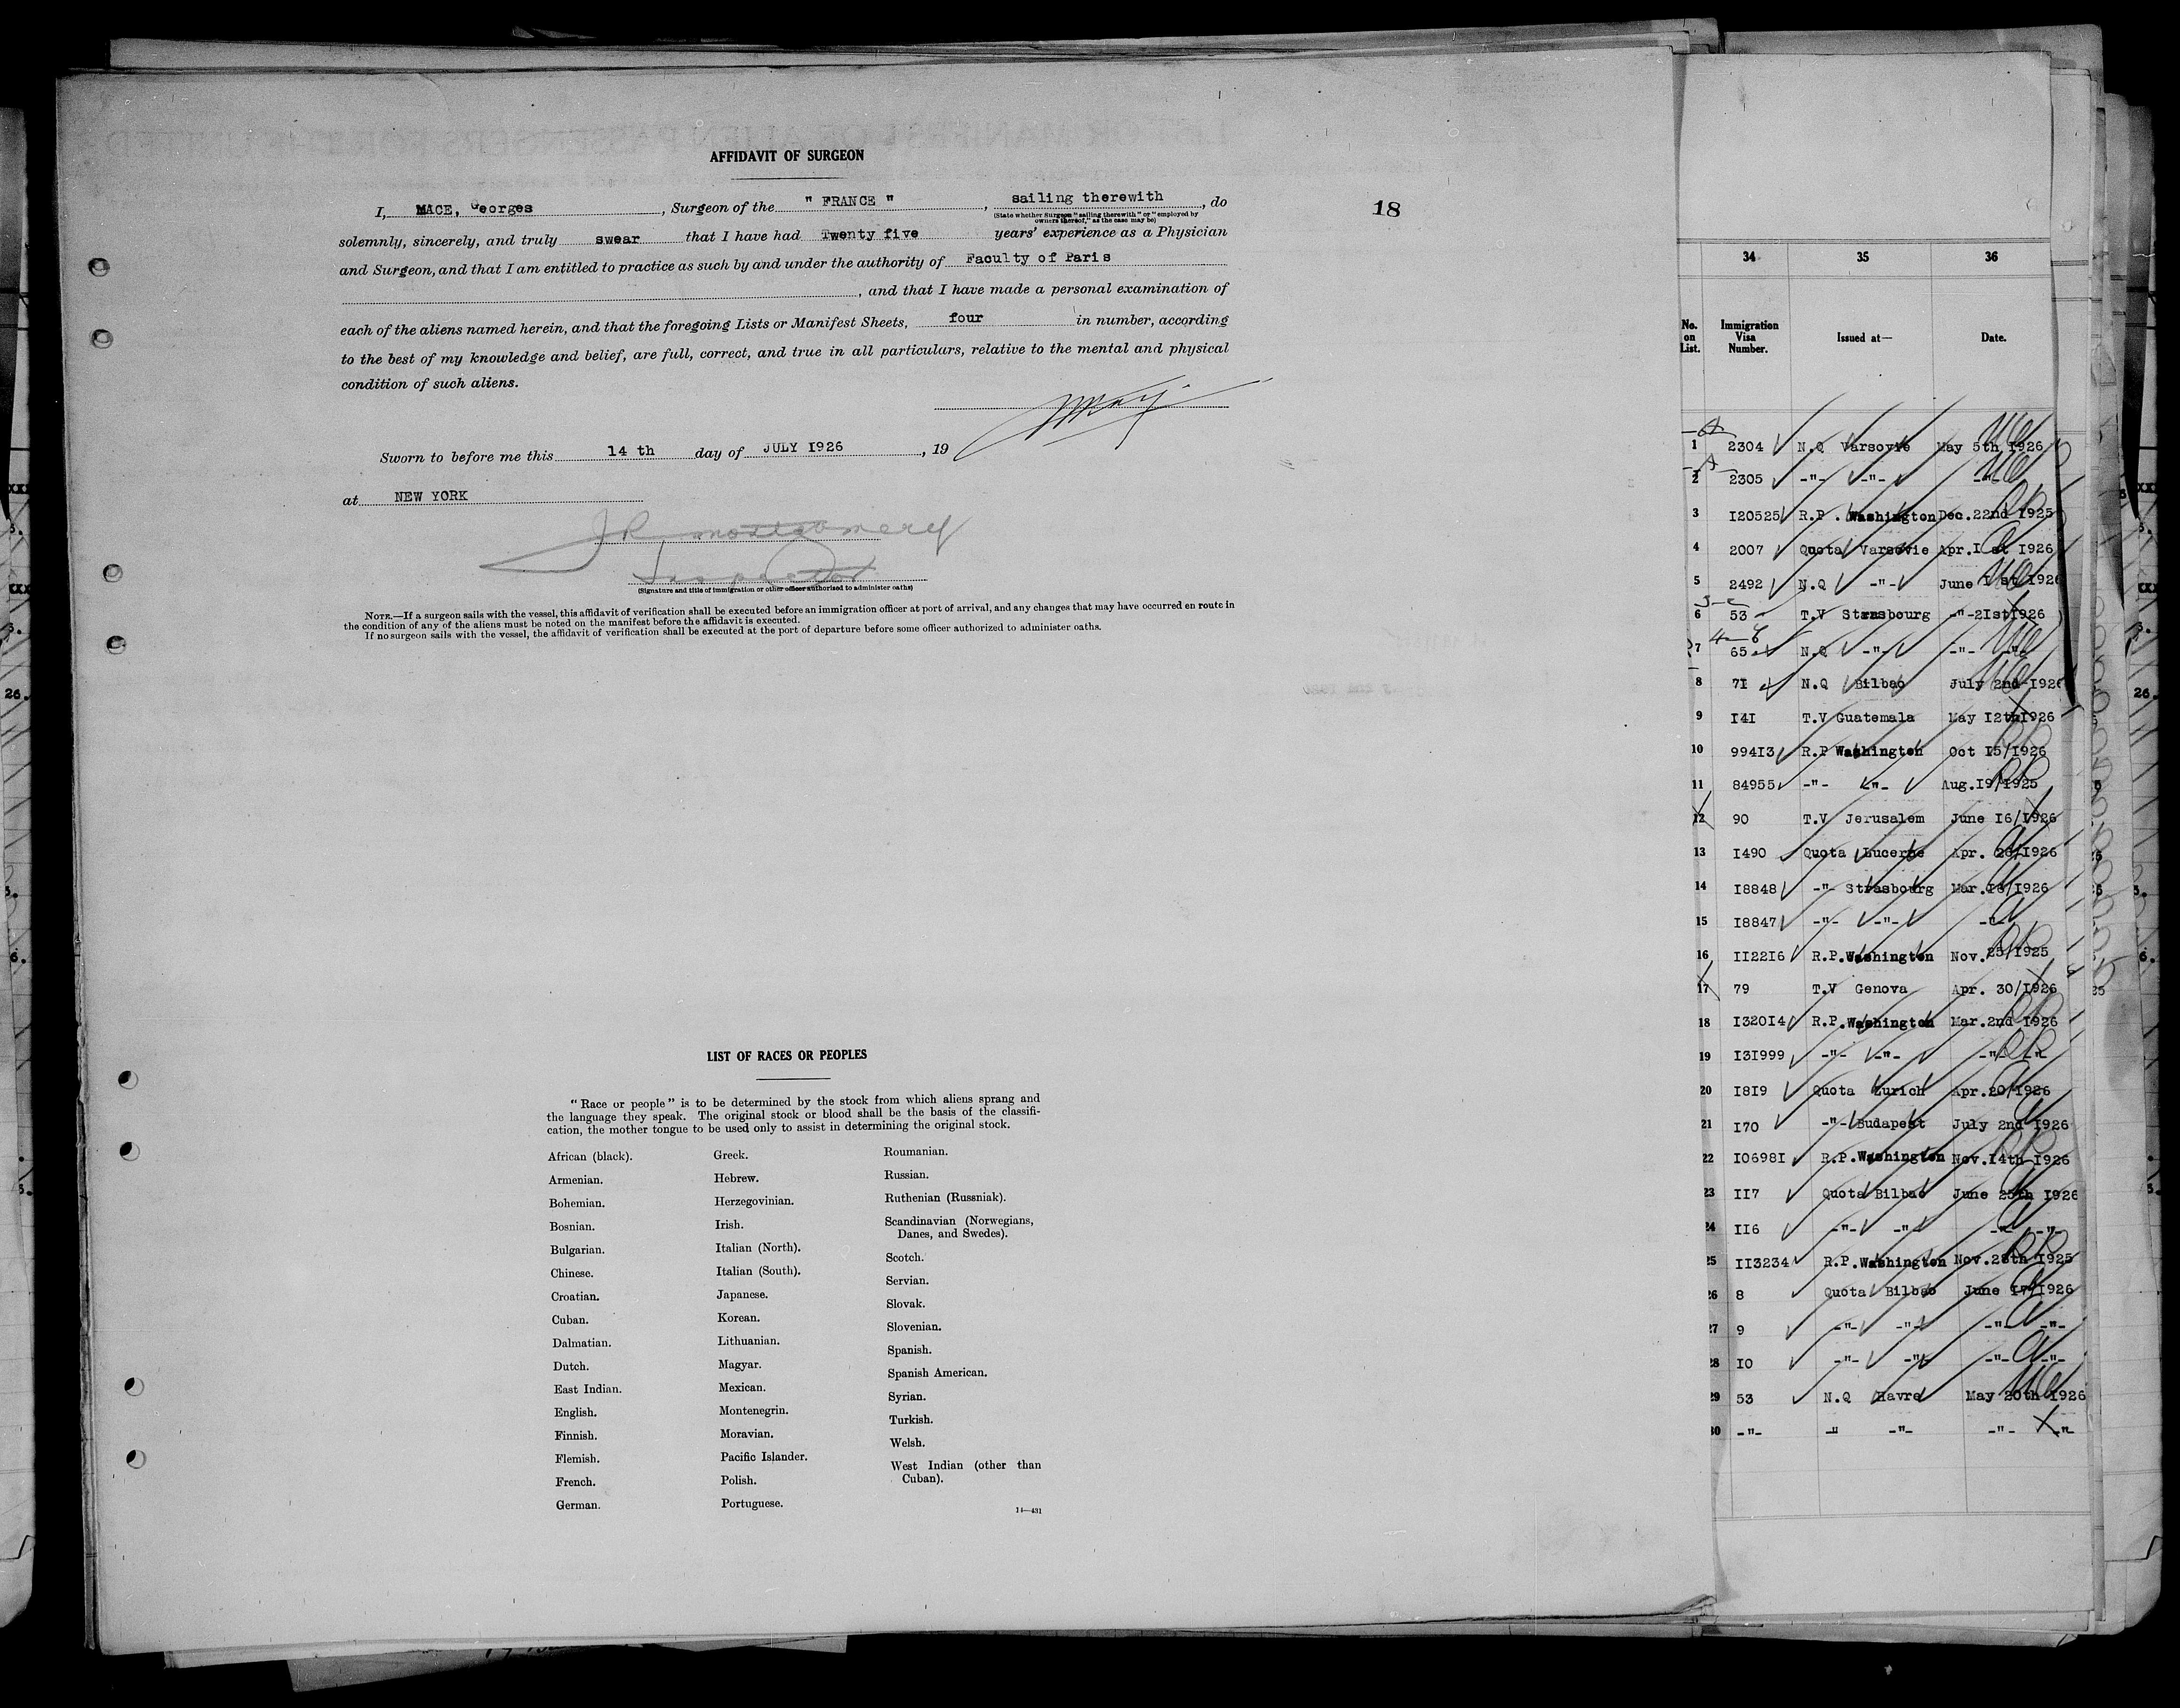 AFFIDAVIT OF SURGEON
I, MACE, Georges , Surgeon of the " FRANCE " , sailing therewith , do
(State whether Surgeon "sailing therewith" or "employed by
owners thereof," as the case may be)
18
solemnly, sincerely, and truly swear that I have had Twenty five years' experience as a Physician
and Surgeon, and that I am entitled to practice as such by and under the authority of Faculty of Paris
, and that I have made a personal examination of
each of the aliens named herein, and that the foregoing Lists or Manifest Sheets, four in number, according
to the best of my knowledge and belief, are full, correct, and true in all particulars, relative to the mental and physical
condition of such aliens.
Sworn to before me this 14 th day of JULY I926 , 19
at NEW YORK
J R Montgomery
Inspector
(Signature and title of immigration or other officer authorized to administer oaths)
NOTE.—If a surgeon sails with the vessel, this affidavit of verification shall be executed before an immigration officer at port of arrival, and any changes that may have occurred en route in
the condition of any of the aliens must be noted on the manifest before the affidavit is executed.
If no surgeon sails with the vessel, the affidavit of verification shall be executed at the port of departure before some officer authorized to administer oaths.
LIST OF RACES OR PEOPLES
"Race or people" is to be determined by the stock from which aliens sprang and
the language they speak. The original stock or blood shall be the basis of the classifi-
cation, the mother tongue to be used only to assist in determining the original stock.
African (black).
Armenian.
Bohemian.
Bosnian.
Bulgarian.
Chinese.
Croatian.
Cuban.
Dalmatian.
Dutch.
East Indian.
English.
Finnish.
Flemish.
French.
German.
Greek.
Hebrew.
Herzegovinian.
Irish.
Italian (North).
Italian (South).
Japanese.
Korean.
Lithuanian.
Magyar.
Mexican.
Montenegrin.
Moravian.
Pacific Islander.
Polish.
Portuguese.
Roumanian.
Russian.
Ruthenian (Russniak).
Scandinavian (Norwegians,
Danes, and Swedes).
Scotch.
Servian.
Slovak.
Slovenian.
Spanish.
Spanish American.
Syrian.
Turkish.
Welsh.
West Indian (other than
Cuban).
14—431
34 35 36
No. on List. Immigration Visa Number. Issued at— Date.
1 2304 N.Q Varsovie May 5th I926
2 2305 -"- -"- -"-
3 I20525 R.P. Washington Dec.22nd I925
4 2007 Quota Varsovie Apr.I st I926
5 2492 N.Q -"- June I st I926
6 53 T.V Strasbourg -"-2Ist I926
7 65 N.Q -"- -"- -"-
8 7I N.Q Bilbao July 2nd I926
9 I4I T.V Guatemala May I2th I926
10 994I3 R.P Washington Oct I5/I926
11 84955 -"- -"- Aug.I9/I925
12 90 T.V Jerusalem June I6/I926
13 I490 Quota Lucerne Apr. 26/I926
14 I8848 -"- Strasbourg Mar.I8/I926
15 I8847 -"- -"- -"-
16 II22I6 R.P.Washington Nov.25/I925
17 79 T.V Genova Apr. 30/I926
18 I320I4 R.P.Washington Mar.2nd I926
19 I3I999 -"- -"- -"- -"-
20 I8I9 Quota Zurich Apr.20/I926
21 I70 -"- Budapest July 2nd I926
22 I0698I R.P.Washington Nov.I4th I926
23 II7 Quota Bilbao June 25th I926
24 II6 -"- -"- -"- -"-
25 II3234 R.P.Washington Nov.28th I925
26 8 Quota Bilbao June I7/I926
27 9 -"- -"- -"- -"-
28 I0 -"- -"- -"- -"-
29 53 N.Q Havre May 20th I926
30 -"- -" -"- -"- -"-